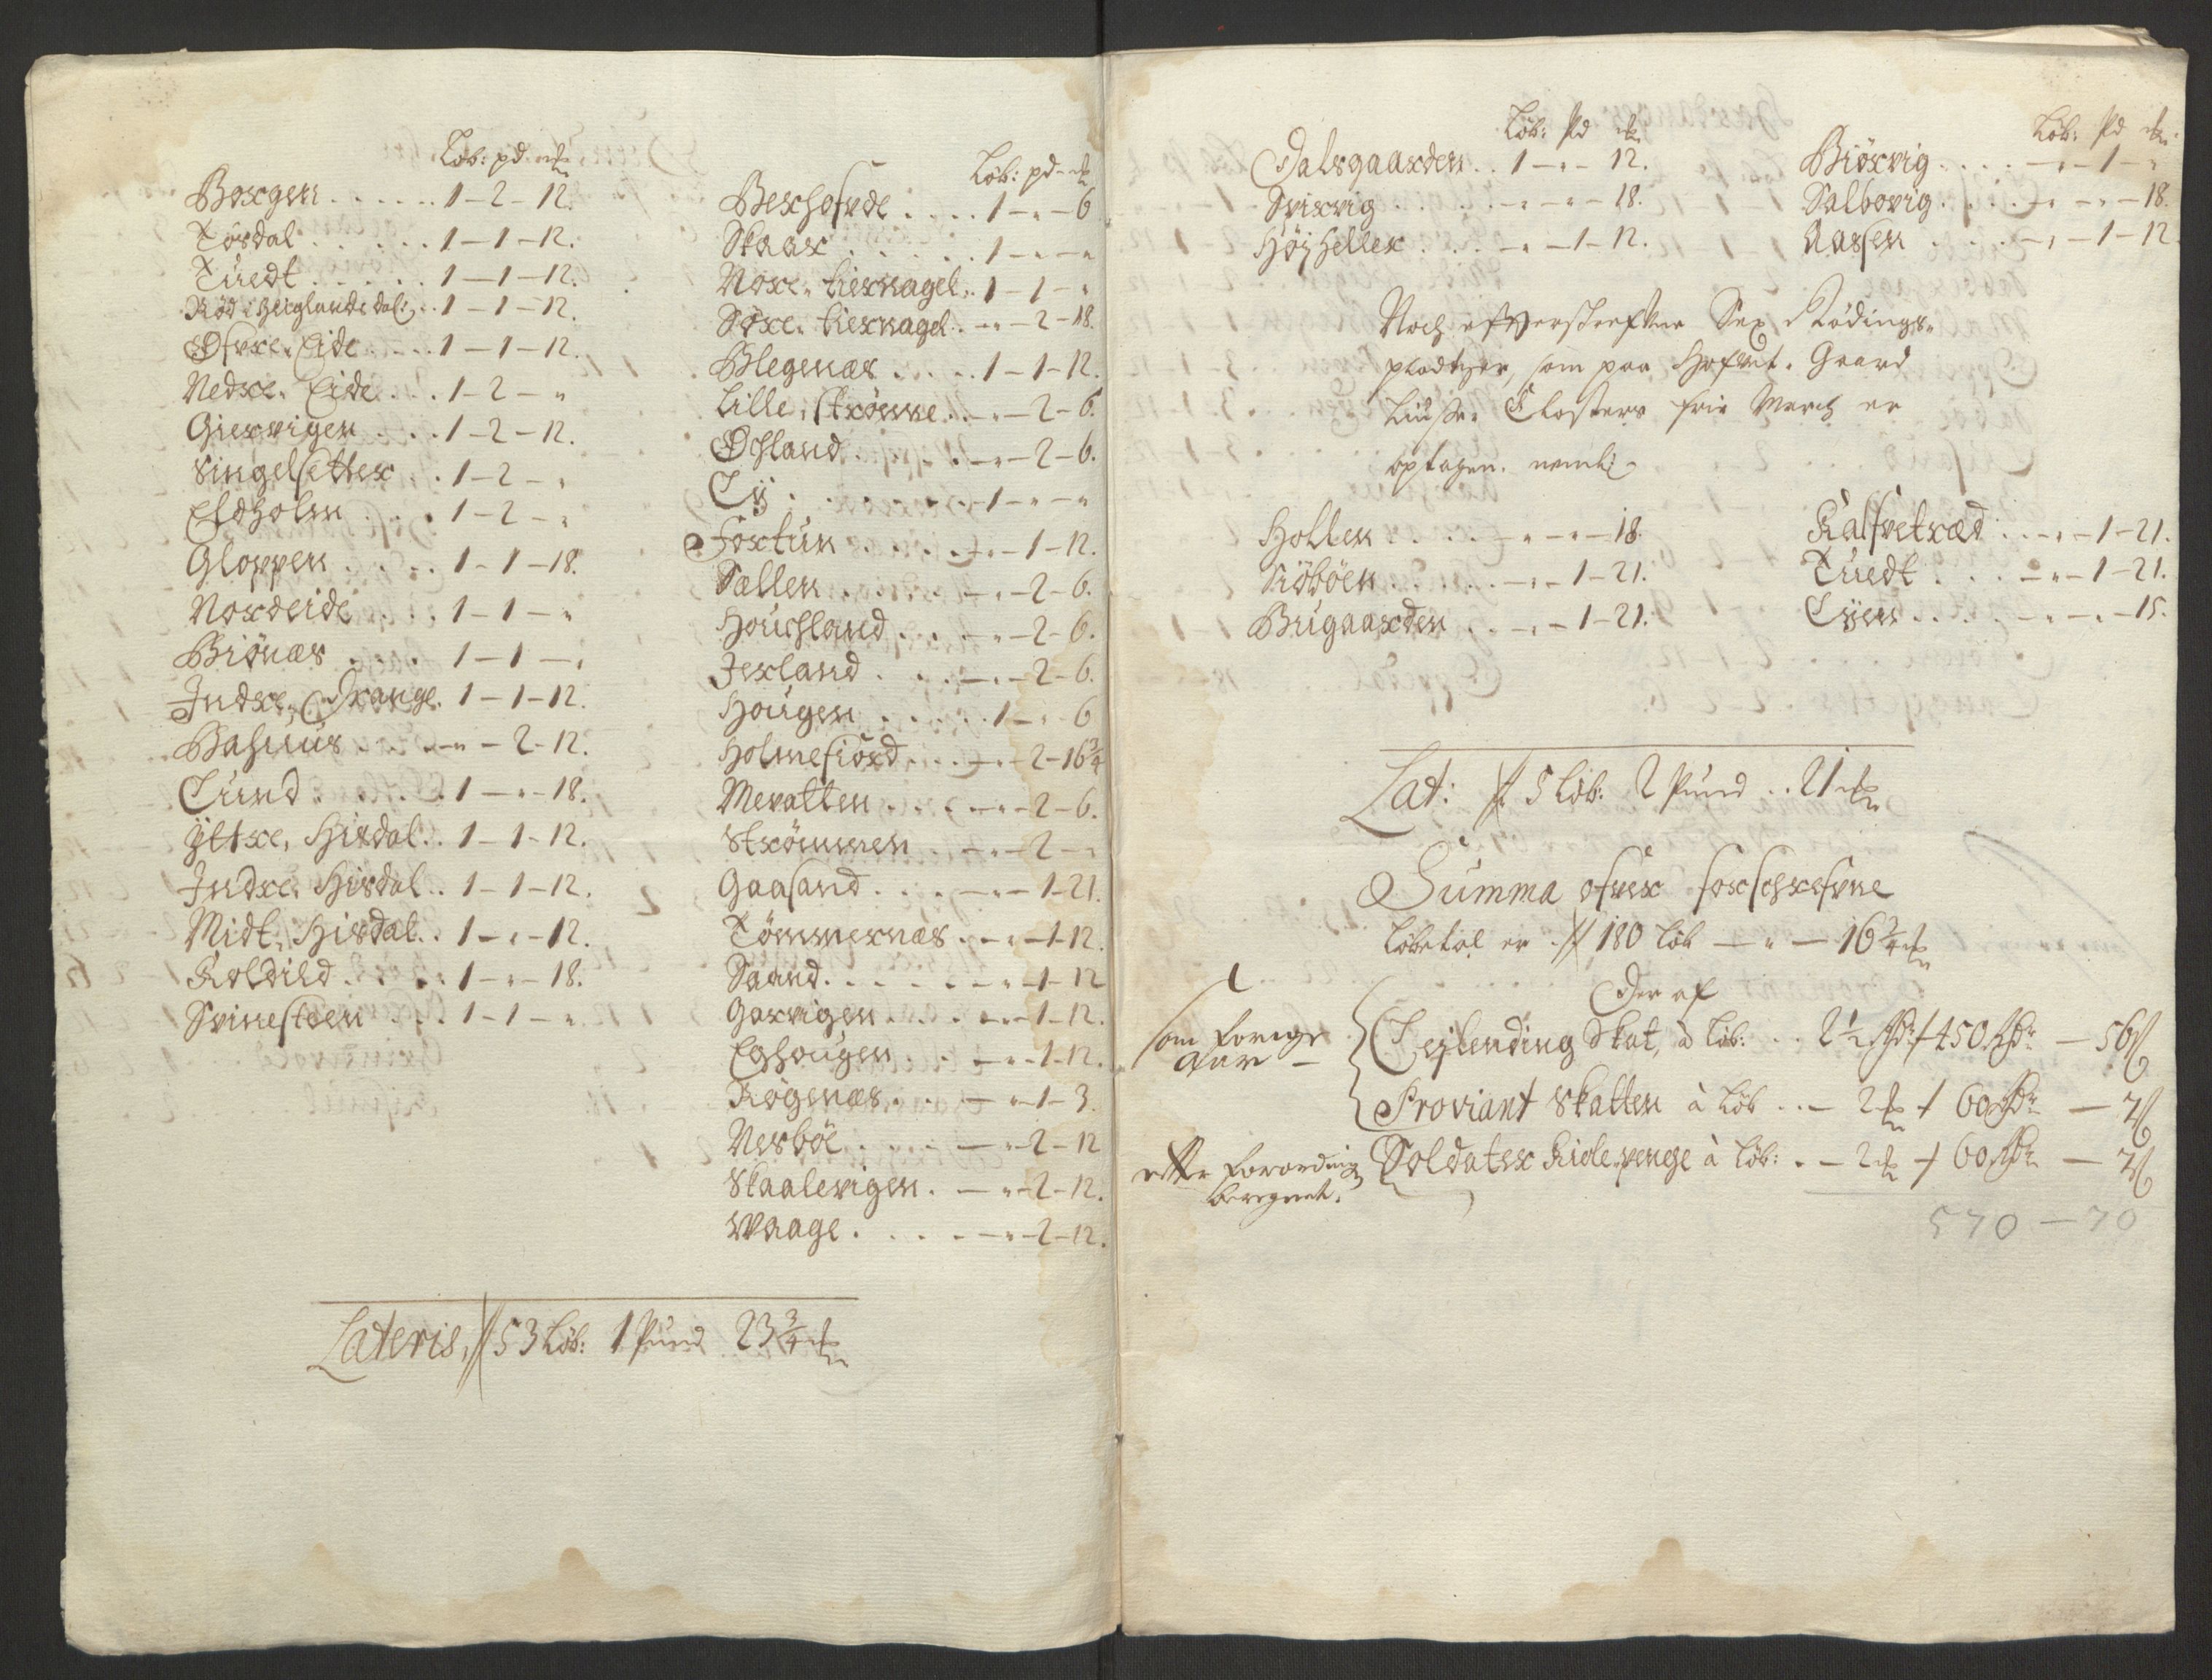 Løb: pd: mk
Borgen . . . . . . 1 - 2 - 12.
Tørdal . . . . . . 1 - 1 - 12.
Tuedt . . . . . . 1 - 1 - 12.
Rød i Heiglandsdal: . . 1 - 1 - 12.
Øfvre, Eide . . . . 1 - 1 - 12.
Nedre, Eide . . . . 1 - 2 - "
Giervigen . . . . 1 - 2 - 12.
Singelsetter . . 1 - 2 - "
Eldholm . . . . 1 - 2 - "
Gloppen . . . . 1 - 1 - 18.
Nordeide . . . . 1 - 1 - "
Biønæs . . . . 1 - 1 - "
Indre, Drange . 1 - 1 - 12.
Bahuus . . . . - " - 2 - 12.
Lund . . . . . 1 - " - 18.
Ÿttre, Hisdal . . 1 - 1 - 12.
Indre, Hisdal . . 1 - 1 - 12.
Midt, Hisdal . . 1 - " - 12.
Koldild . . . . 1 - " - 18.
Svinesteen . . . . 1 - 1 - "
Løb: pd - mk
Berhofvde . . . . 1 - " - 6
Skaar . . . . . . 1 - " - "
Nore, Liernagel . 1 - 1 - "
Søre, Liernagel . - " - 2 - 18.
Blegenæs . . . . . 1 - 1 - 12.
Lille, Strømme . . - " - 2 - 6.
Øfland . . . . - " - 2 - 6.
Lÿ . . . . . . 1 - " - "
Fortun . . . . - " - 1 - 12.
Sællen . . . . . - " - 2 - 6.
Houfland . . . - " - 2 - 6.
Ierland . . . - " - 2 - 6.
Hougen . . . . . . 1 - " - 6
Holmefiord . . . - " - 2 - 16 3/4
Mevatten . . . - " - 2 - 6.
Strømmen . . - " - 2 - "
Gaasand . . . . - " - 1 - 21.
Tømmernæs . - " - 1 - 12.
Saand . . . . . . - " - 1 - 12
Garvigen . . . . - " - 1 - 12.
Eghougen . . - " - 1 - 12.
Røgenæs . . . - " - 1 - 3.
Nesbøe . . . - " - 2 - 12
Skaalevigen . - " - 2 - 12.
Waage . . . . - " - 2 - 12.
Lateris, 53 Løb: 1 Pund 23 3/4 mk
Løb: Pd mk
Dalsgaarden . . 1 - " - 12.
Svirvig . . . . . - " - " - 18.
Høÿheller . . . - " - 1 - 12.
Løb: Pd mk
Biørvig . . . . - " - 1 - "
Salbovig . . . . - " - " - 18.
Aassen . . . . - " - 1 - 12
Noch efterskrefne Sex Rødings-
pladtzer, som paa Hafvet. Graard
Liuse, Closters frie March er
optagen. nemlig
Hollen . . . . - " - " - 18.
Siøbøen . . . . - " - 1 - 21.
Brugaarden . . - " - 1 - 21.
Kalfvetræd . . - " - 1 - 21.
Tuedt . . . - " - 1 - 21.
Lÿen . . . . - " - " - 15.
Lat: 5 Løb: 2 Pund . . 21 mk
Summa ofver forschrefvne
Løbetal er 180 Løb - " - 16 3/4 mk
Der af
som forige Aar -
Leilending Skat, à Løb: . . 2 1/2 Rdr 450 Rdr - 56 ß
Proviant Skatten à Løb . . - 2 mk 60 Rdr - 7 ß
efter forordning beregnet.
Soldater Kiole, penge à Løb: . - 2 mk 60 Rdr - 7 ß
570 - 70